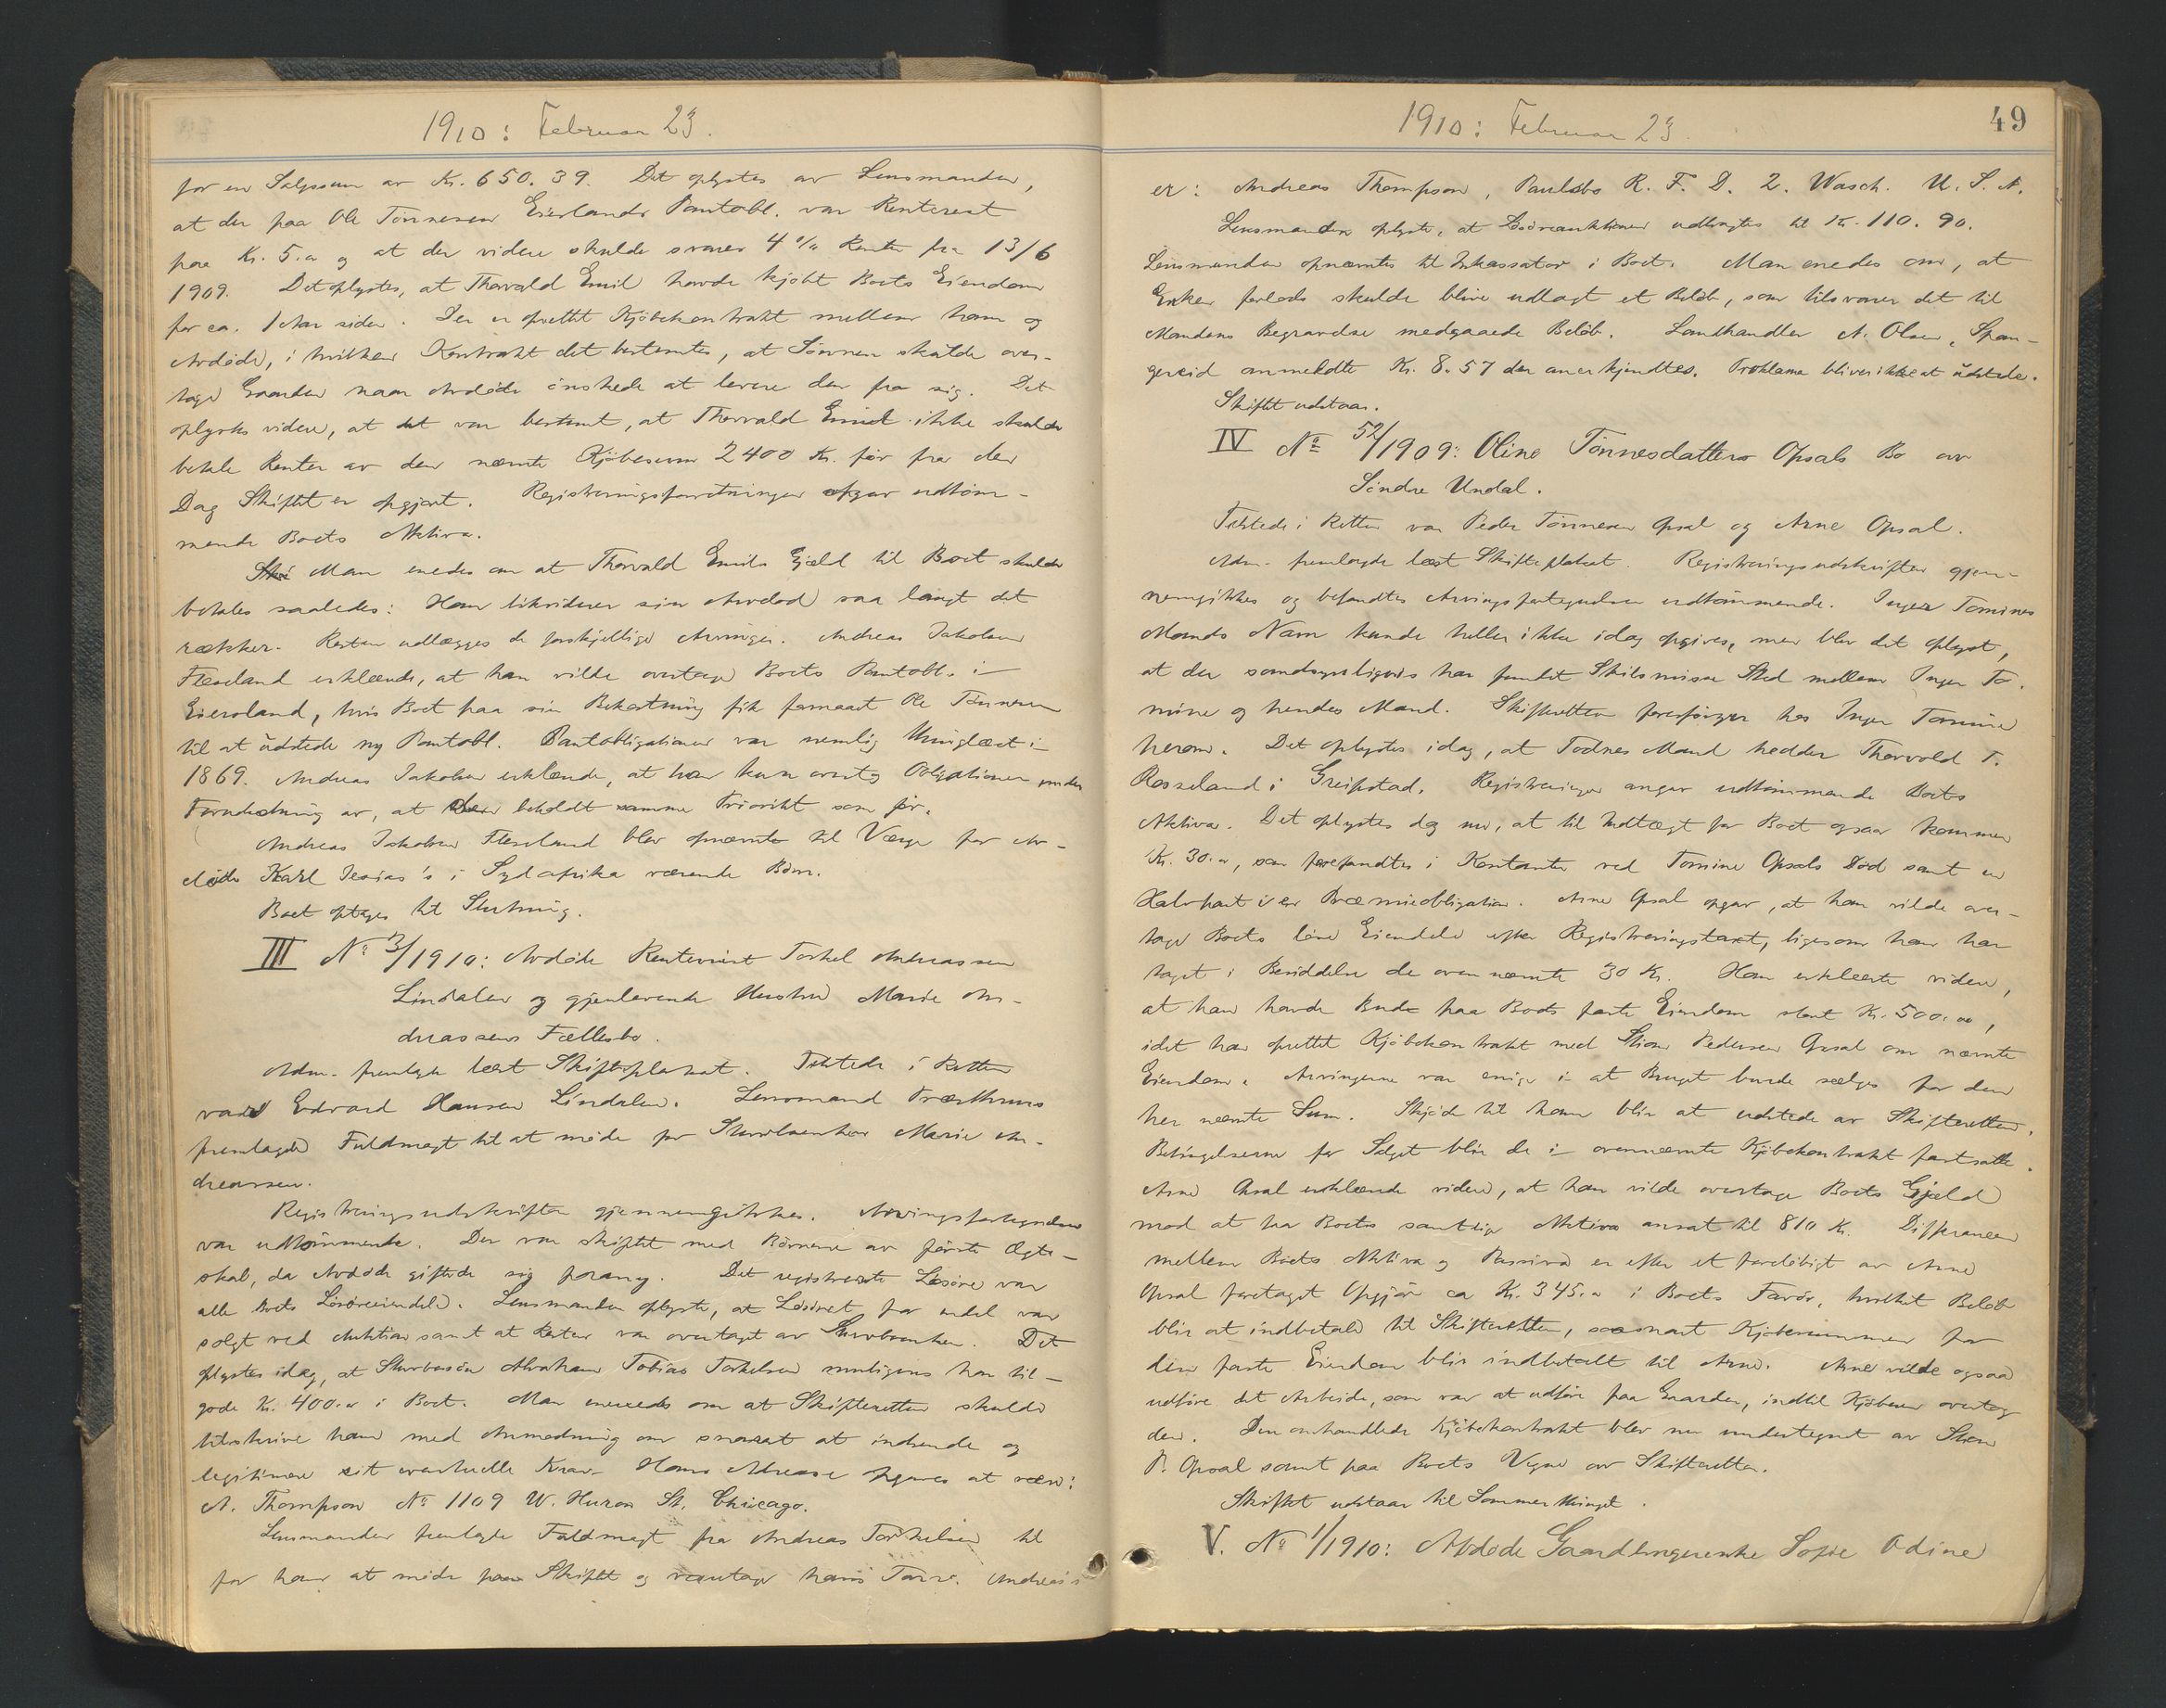 1910: Februar 23.
for en Salgssum av Kr. 650.39. Det oplystes av Lensmanden,
at der paa Ole Tönnesen Eierslands Pantobl. var Renterest
paa Kr. 5.00 og at der videre skulde svares 4 % Rente fra 13/6
1909. Det oplystes, at Thorvald Emil havde kjöbt Boets Eiendom
for ca. 1 Aar siden. Der er oprettet Kjöbekontrakt mellem ham og
Avdöde, i hvilken Kontrakt det bestemtes, at Sönnen skulde over-
tage Gaarden naar Avdöde önskede at levere den fra sig. Det
oplystes videre, at det var bestemt, at Thorvald Emil ikke skulde
betale Renter av den nævnte Kjöbesum 2400 Kr. för fra den
Dag Skiftet er opgjort. Registreringsforretningen opgav udtöm-
mende Boets Aktiva.
Man enedes om at Thorvald Emils Gjæld til Boet skulde
betales saaledes: Han likviderer sin Arvelod saa langt det
rækker. Resten udlægges de forskjellige Arvinger. Andreas Jakobsen
Fleseland erklærede, at han vilde overtage Boets Pantobl. i
Eiersland, hvis Boet paa sin Bekostning fik formaaet Ole Tönnesen
til at udstede ny Pantobl. Pantobligationen var nemlig thinglæst i
1869. Andreas Jakobsen erklærede, at han kun overtog Obligationen under
Forudsætning av, at den beholdt samme Prioritet som för.
Andreas Jakobsen Fleseland blev opnævnt til Værge for Av-
döde Karl Jesias's i Sydafrika værende Börn.
Boet optages til Slutning.
III No 3/1910: Avdöde Rentenist Torkel Andreassen
Lindalen og gjenlevende Hustru Marie An-
dreassens Fællesbo.
Adm. fremlagde læst Skifteplakat. Tilstede i Retten
var Edvard Hansen Lindalen. Lensmand Træsthuus
fremlagde Fuldmagt til at möde for Stervboenken Marie An-
dreassen.
Registreringsudskriften gjennemgikkes. Arvingsfortegnelsen
var udtömmende. Der var skiftet med Börnene av förste Ægte-
skab, da Avdöde giftede sig paany. Det registrerede Lösöre var
alle Boets Lösöreeiendele. Lensmanden oplyste, at Lösöret for endel var
solgt ved Auktion samt at Resten var overtaget av Stervboenken. Det
oplystes idag, at Stervbosön Abraham Tobias Torkelsen muligens har til-
gode Kr. 400.00 i Boet. Man enedes om at Skifteretten skulde
tilskrive ham med Anmodning om snarest at indsende og
legitimere sit eventuelle Krav. Hans Adresse opgaves at være:
A. Thompson No 1109 W. Huron St. Chicago.
Lensmanden fremlagde Fuldmagt fra Andreas Torkelsen til
for ham at möde paa Skiftet og varetage hans Tarv. Andreas's
1910: Februar 23.
49
er: Andreas Thompson, Paulsbo R. F. D. 2. Wasch. U. S. A.
Lensmanden oplyste, at Lösöreauktionen udbragtes til Kr. 110.90.
Lensmanden opnævntes til Inkassator i Boet. Man enedes om, at
Enken forlods skulde blive udlagt et Belöb, som tilsvarer det til
Mandens Begravelse medgaaede Belöb. Landhandler A. Olsen, Span-
gereid anmeldte Kr. 8.57 der anerkjendtes. Proklama bliver ikke at udstede.
Skiftet udstaar.
IV No 52/1909: Oline Tönnesdatters Opsals Bo av
Söndre Undal.
Tilstede i Retten var Peder Tönnesen Opsal og Arne Opsal.
Adm. fremlagde læst Skifteplakat. Registreringsudskriften gjen-
nemgikkes og befandtes Arvingsfortegnelsen udtömmende. Inger Tomines
Mands Navn kunde heller ikke idag opgives, men blev det oplyst,
at der sandsynligvis har fundet Skilsmisse Sted mellem Inger To-
mine og hendes Mand. Skifteretten forespörger hos Inger Tomine
herom. Det oplystes idag, at Todnes Mand hedder Thorvald T.
Rosseland i Greipstad. Registreringen angav udtömmende Boets
Aktiva. Det oplystes dog nu, at til Indtægt for Boet ogsaa kommer
Kr. 30.00, som forefandtes i Kontanter ved Tomine Opsals Död samt en
Halvpart i en Præmieobligation. Arne Opsal opgav, at han vilde over-
tage Boets löse Eiendele efter Registreringstaxt, ligesom han har
taget i Besiddelse de ovennævnte 30 Kr. Han erklærte videre,
at han havde Bud paa Boets faste Eiendom stort Kr. 500.00,
idet han oprettet Kjöbekontrakt med Stian Pedersen Opsal om nævnte
Eiendom. Arvingerne var enige i at Bruget burde sælges for den
her nævnte Sum. Skjöde til ham blir at udstede av Skifteretten.
Betingelserne for Salget blir de i ovennævnte Kjöbekontrakt fastsatte.
Arne Opsal erklærede videre, at han vilde overtage Boets Gjæld
mod at faa Boets samtlige Aktiva ansat til 810 Kr. Differencen
mellem Boets Aktiva og Passiva er efter et forelöbigt av Arne
Opsal foretaget Opgjör ca Kr. 345.00 i Boets Favör, hvilket Belöb
blir at indbetale til Skifteretten, saasnart Kjöbesummen for
den faste Eiendom blir indbetalt til Arne. Arne vilde ogsaa
udföre det Arbeide, som var at udföre paa Gaarden, indtil Kjöberen overtog
den. Den omhandlede Kjöbekontrakt blev nu undertegnet av Stian
P. Opsal samt paa Boets Vegne av Skifteretten.
Skiftet udstaar til Sommerthinget.
V. No 1/1910: Avdöde Gaardbrugerenke Sofie Odine